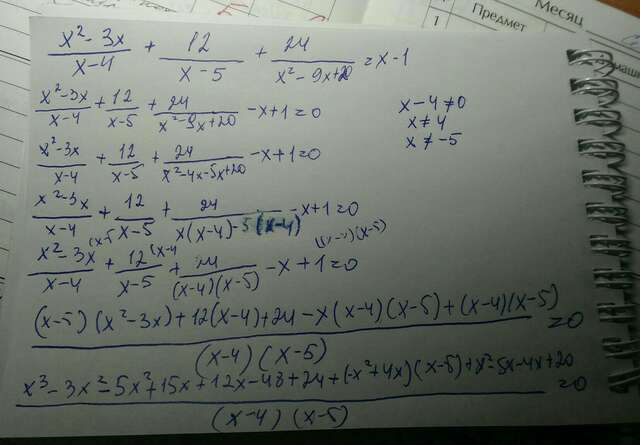 Месяц
Предмет
1
x² - 3x / x - 4 + 12 / x - 5 + 24 / x² - 9x + 20 = x - 1
x² - 3x / x - 4 + 12 / x - 5 + 24 / x² - 9x + 20 - x + 1 = 0
x - 4 ≠ 0
x ≠ 4
x ≠ -5
x² - 3x / x - 4 + 12 / x - 5 + 24 / x² - 4x - 5x + 20 - x + 1 = 0
x² - 3x / x - 4 + 12 / x - 5 + 24 / x(x - 4) - 5(x - 4) - x + 1 = 0
x² - 3x (x - 5 / x - 4 + 12 (x - 4 / x - 5 + 24 / (x - 4)(x - 5) - x + 1 = 0
(x - 5)(x² - 3x) + 12(x - 4) + 24 - x(x - 4)(x - 5) + (x - 4)(x - 5) / (x - 4)(x - 5) = 0
x³ - 3x² - 5x² + 15x + 12x - 48 + 24 + (-x² + 4x)(x - 5) + x² - 5x - 4x + 20 / (x - 4)(x - 5) = 0